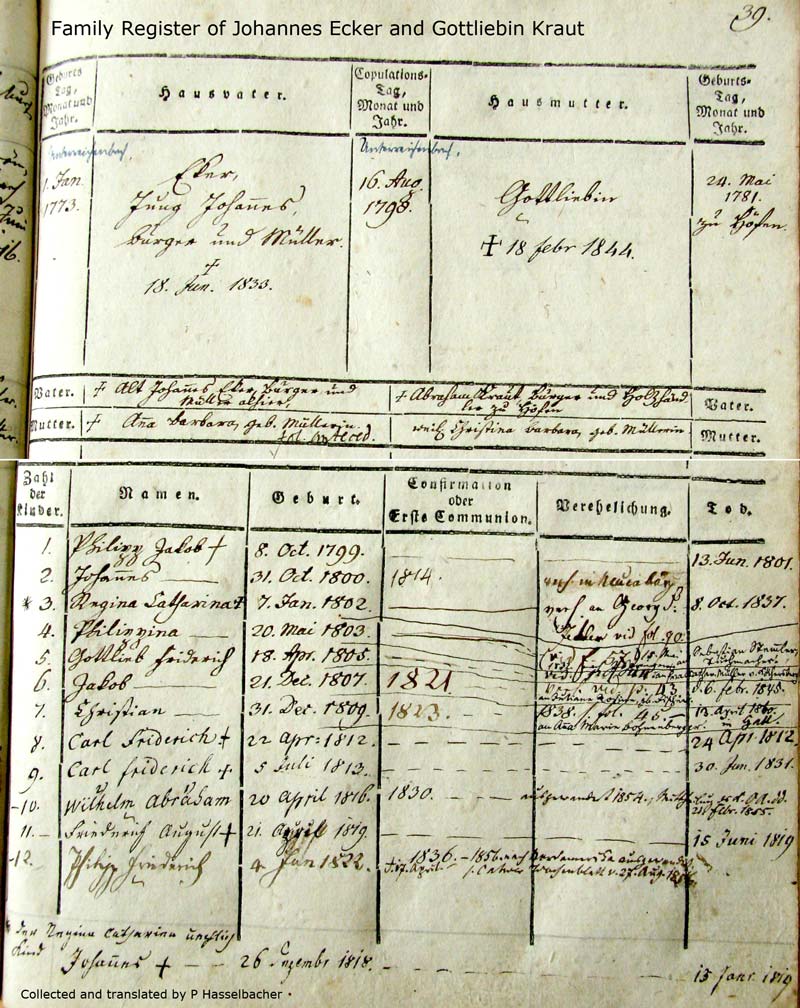 Family Register of Johannes Ecker and Gottliebin Kraut
39.
Geburts
Tag,
Monat und
Jahr.
Hausvater.
Copulations-
Tag,
Monat und
Jahr.
Hausmutter.
Geburts-
Tag,
Monat und
Jahr.
Unterreichenbach, Unterreichenbach.
1. Jan.
1773.
Eker,
Jung Johannes,
bürger und Müller.
†
18. Jun. 1833.
16. Aug.
1798.
Gottliebin
† 18 febr 1844.
24. Mai
1781.
zu Höfen.
Vater. † Alt Johannes Eker, bürger und
Müller
† Abraham Kraut, bürger und Holzhänd
ler zu Höfen Vater.
Mutter. † Anna barbara, geb. Müllerin.
weil. Christina barbara, geb. Müllerin Mutter.
Zahl
der
Kinder.
Namen.
Geburt.
Confirmation
oder
Erste Communion.
Verehelichung.
Tod.
1. Philipp Jakob † 8. Oct. 1799. 13. Jun. 1801.
2. Johannes 31. Oct. 1800. 1814.
* 3. Regina Catharina † 7. Jan. 1802. verh. an Georg 8. Oct. 1837.
4. Philippina 20. Mai 1803. vid fol. 90.
5. Gottlieb friderich 18. Apr. 1805. Sebastian
6. Jakob 21. Dec. 1807. 1821 d. 6. febr. 1845.
7. Christian 31. Dec. 1809. 1823. 1838. fol. 46 13. April 1860.
an Anna Maria
8. Carl Friderich † 22 Apr: 1812. 24 Apr. 1812.
9. Carl friderich † 5 Juli 1813. 30. Jun. 1831.
10. Wilhelm Abraham 20 April 1816. 1830. ausgewandert 1854.
febr. 1855.
11. Friederich August † 21. August 1819. 15 Juni 1819
12. Philipp friederich 4 Jan 1822. 1836. 1856. nach Nordamerika
† 17. April Wochenblatt v. 27. Aug.
* der Regina Catharina unehlich
Kind
Johannes † 26 Dezember 1818. 15 Janr. 1819
Collected and translated by P Hasselbacher